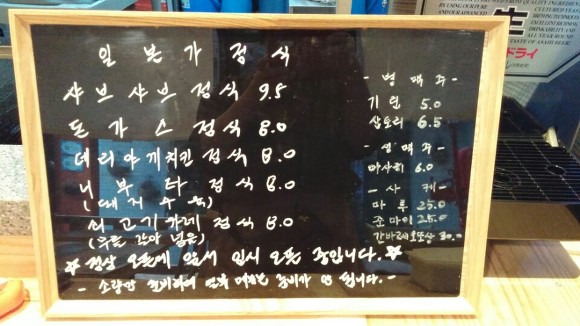 일본가정식
샤브샤브정식 9.5
돈가스정식 8.0
데리야끼치킨정식 8.0
니부다정식 8.0
(돼지수육)
쇠고기카레정식 8.0
(우를 갈아 넣은)
☆정상 오픈에 앞서 임시 오픈 중입니다.☆
- 소량만 준비하여 일부 메뉴는 준비가 안 됩니다. -
- 병맥주 -
기린 5.0
삿포리 6.5
- 생맥주 -
아사히 6.0
- 사케 -
마루 25.0
준마이 25.0
간바레오또상 30.0
生
ドライ